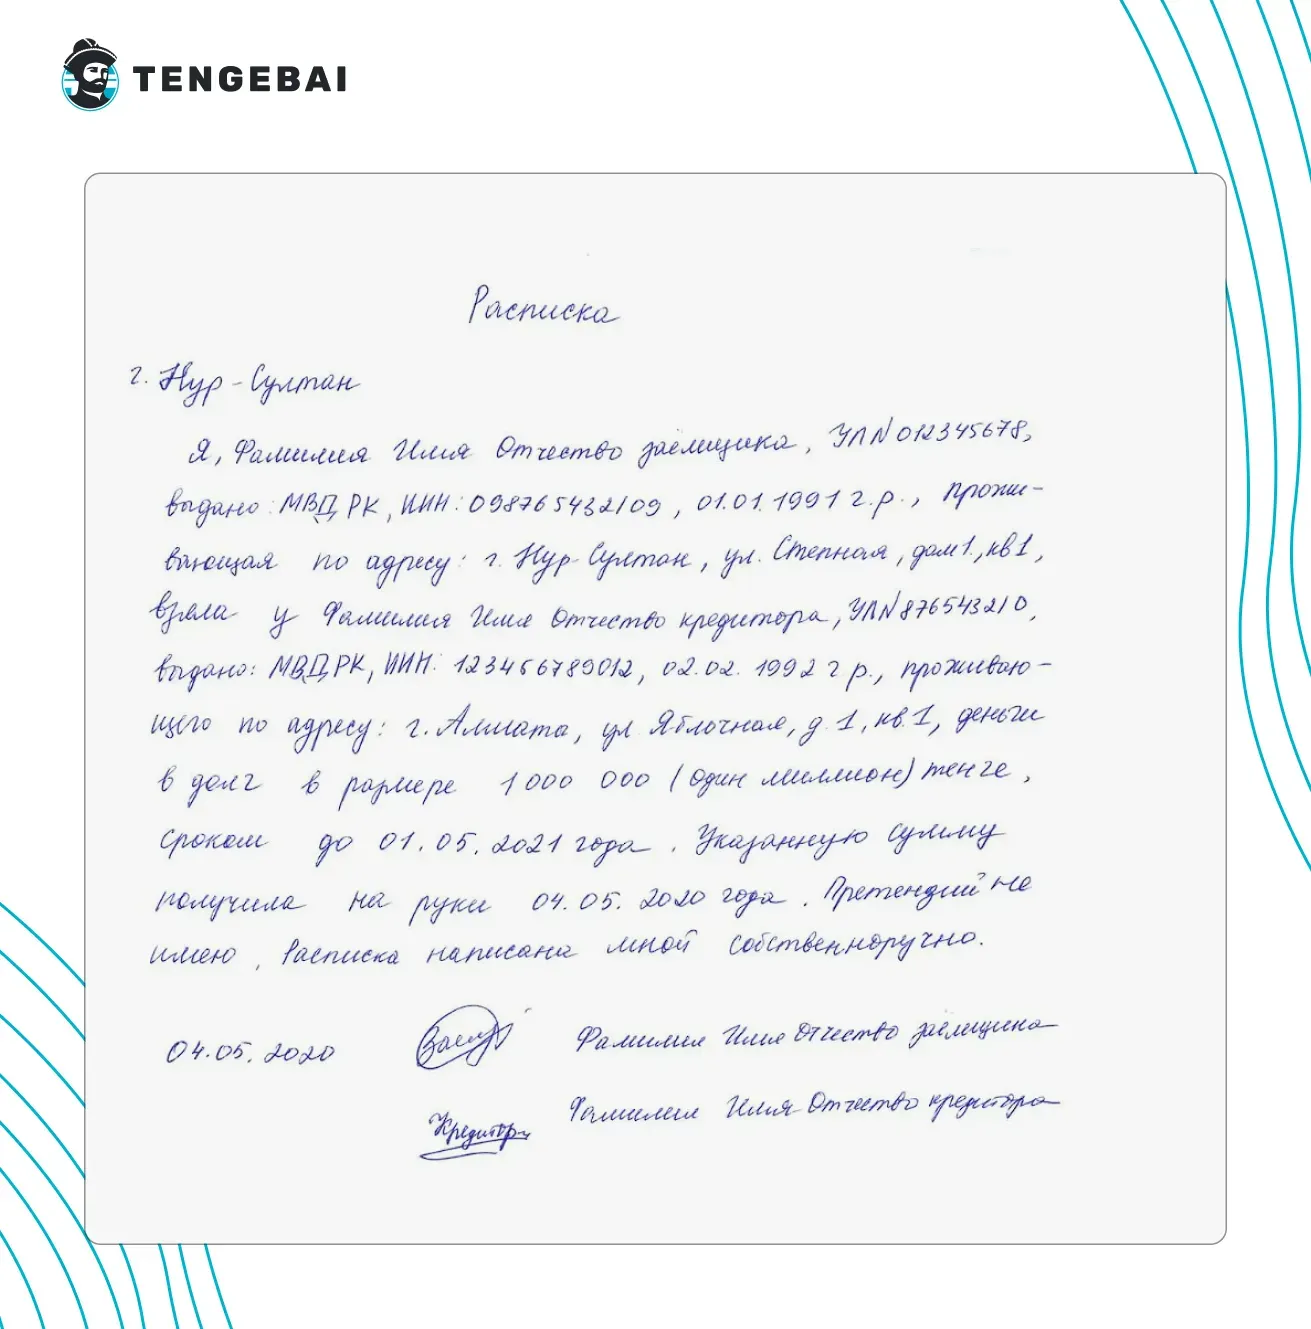 TENGEBAI
Расписка
г. Нур-Султан
Я, Фамилия Имя Отчество заёмщика, УЛ№012345678,
выдано: МВД РК, ИИН: 098765432109, 01.01.1991 г.р., прожи-
вающая по адресу: г. Нур-Султан, ул. Степная, дом 1, кв 1,
взяла у Фамилия Имя Отчество кредитора, УЛ№876543210,
выдано: МВД РК, ИИН: 123456789012, 02.02.1992 г р., проживаю-
щего по адресу: г. Алмата, ул Яблочная, д. 1, кв. 1, деньги
в долг в размере 1 000 000 (один миллион) тенге,
сроком до 01.05.2021 года. Указанную сумму
получила на руки 04.05.2020 года. Претендий не
имею, Расписка написана мной собственноручно.
04.05.2020 Фамилия Имя Отчество заёмщика
Кредитор Фамилия Имя Отчество кредитора